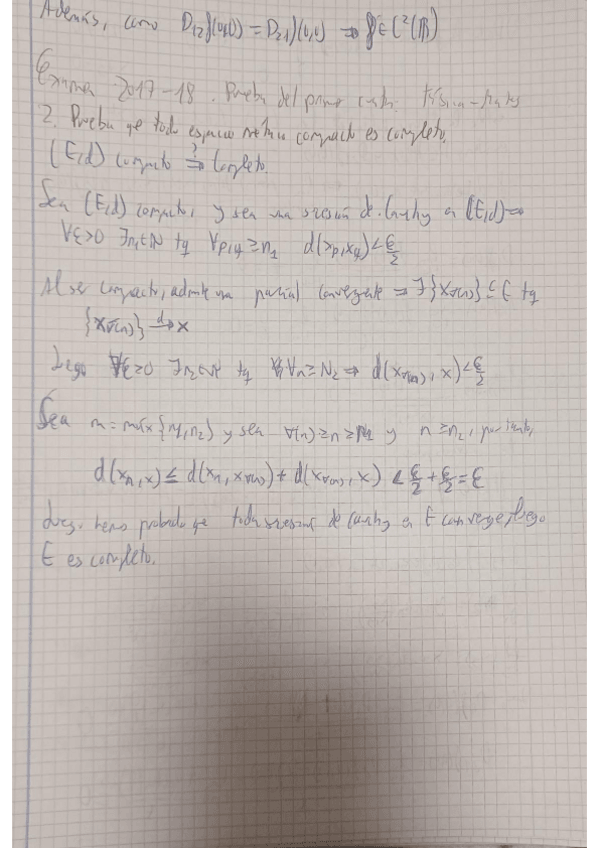 Además, como D₁₂f(0,0) = D₂₁f(0,0) ⇒ f∈C²(ℝ)
Examen 2017-18. Prueba del primer Física-Mates
2. Prueba qe todo espacio métrico compacto es completo.
(E,d) compacto ⇒? Completo.
Sea (E,d) compacto, y sea una sucesión de Cauchy en (E,d) ⇒
∀ε>0 ∃n₁∈ℕ tq ∀p,q ≥ n₁ d(xₚ,x_q) < ε/2
Al ser compacto, admite una parcial convergente ⇒ ∃{x_σ(n)} ⊆ E tq
{x_σ(n)} →d x
Luego ∀ε>0 ∃n₂∈ℕ tq ∀n ≥ N₂ ⇒ d(x_σ(n), x) < ε/2
Sea m = máx{n₁,n₂} y sea σ(n) ≥ n ≥ n₁ y n ≥ n₂, por tanto,
d(xₙ,x) ≤ d(xₙ, x_σ(n)) + d(x_σ(n), x) < ε/2 + ε/2 = ε
Luego, hemos probado qe toda sucesión de Cauchy en E converge, luego
E es completo.